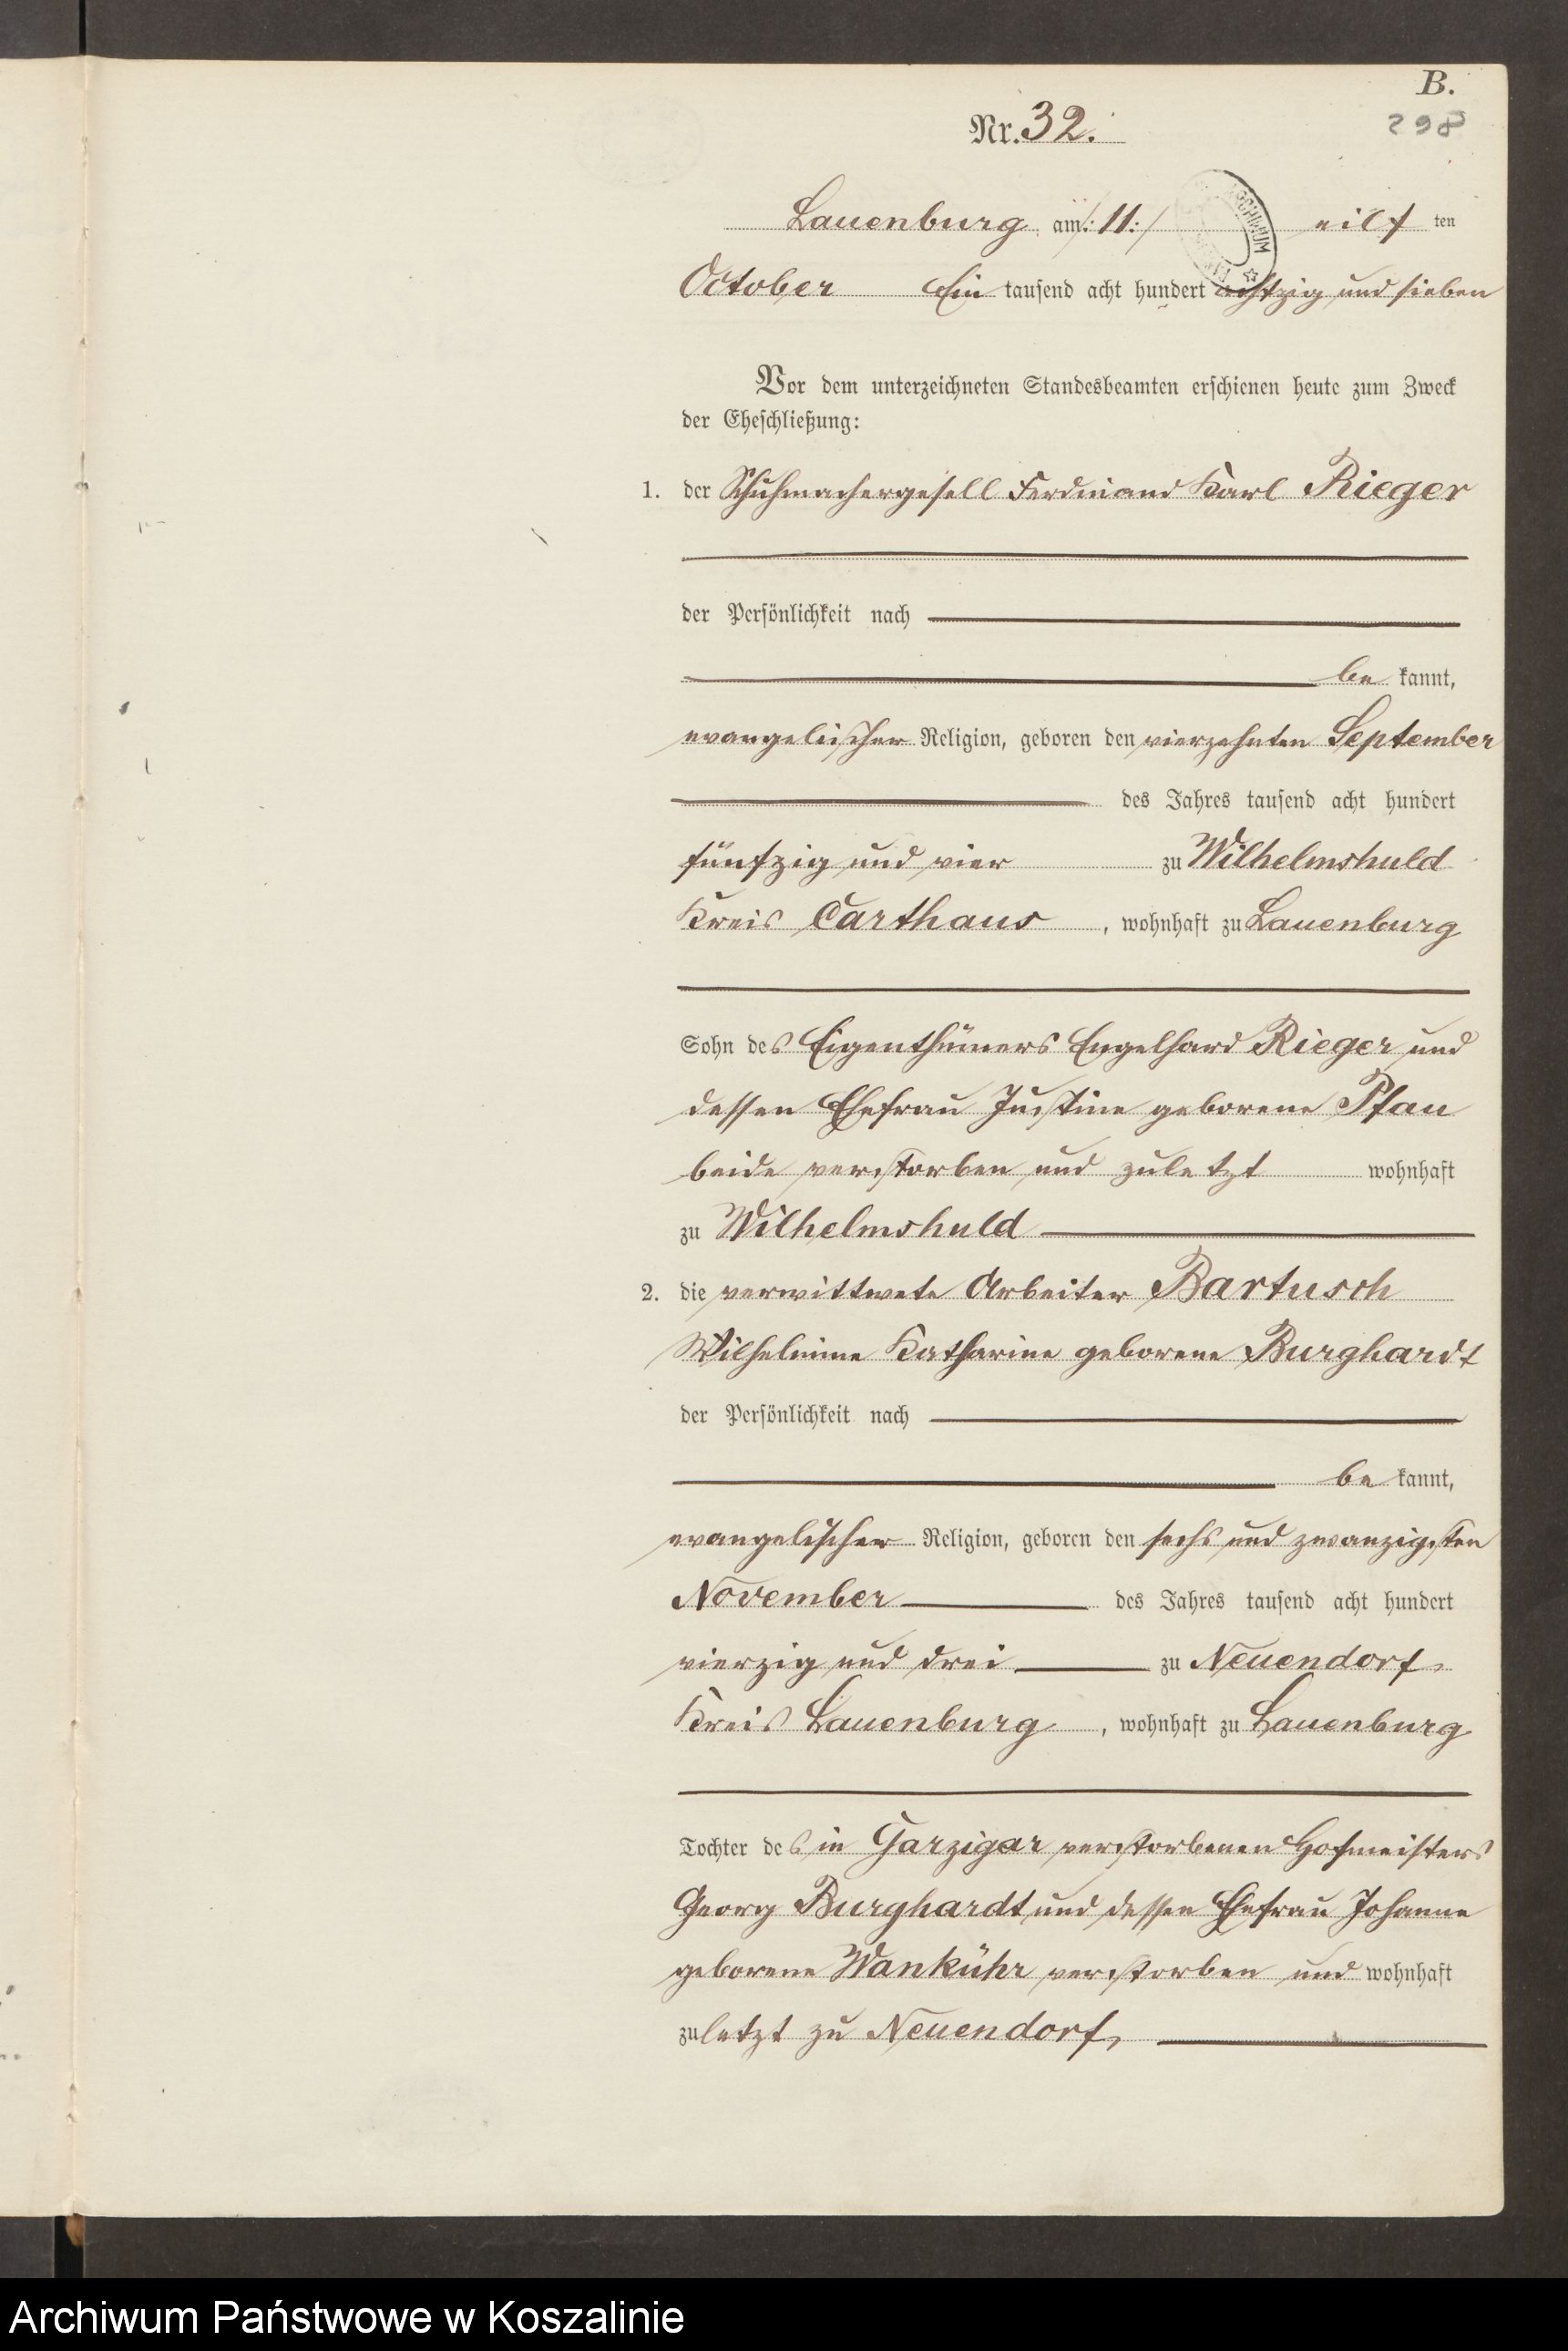 B.
298
Nr. 32.
Lauenburg am /: 11 :/ eilf ten
October Ein tausend acht hundert achtzig und sieben
ARCHIWUM
Vor dem unterzeichneten Standesbeamten erschienen heute zum Zweck
der Eheschließung:
1. der Schuhmachergesell Ferdinand Karl Rieger
der Persönlichkeit nach
be kannt,
evangelischer Religion, geboren den vierzehnten September
des Jahres tausend acht hundert
fünfzig und vier zu Wilhelmshuld
Kreis Carthaus, wohnhaft zu Lauenburg
Sohn des Eigenthümers Engelhard Rieger und
dessen Ehefrau Justine geborene Pfau
beide verstorben und zuletzt wohnhaft
zu Wilhelmshuld
2. die verwittwete Arbeiter Bartusch
Wilhelmine Katharine geborene Burghardt
der Persönlichkeit nach
be kannt,
evangelischer Religion, geboren den sechs und zwanzigsten
November des Jahres tausend acht hundert
vierzig und drei zu Neuendorf,
Kreis Lauenburg, wohnhaft zu Lauenburg
Tochter des in Garzigar verstorbenen Hofmeisters
Georg Burghardt und dessen Ehefrau Johanne
geborene Wankühr verstorben und wohnhaft
zuletzt zu Neuendorf,
Archiwum Państwowe w Koszalinie